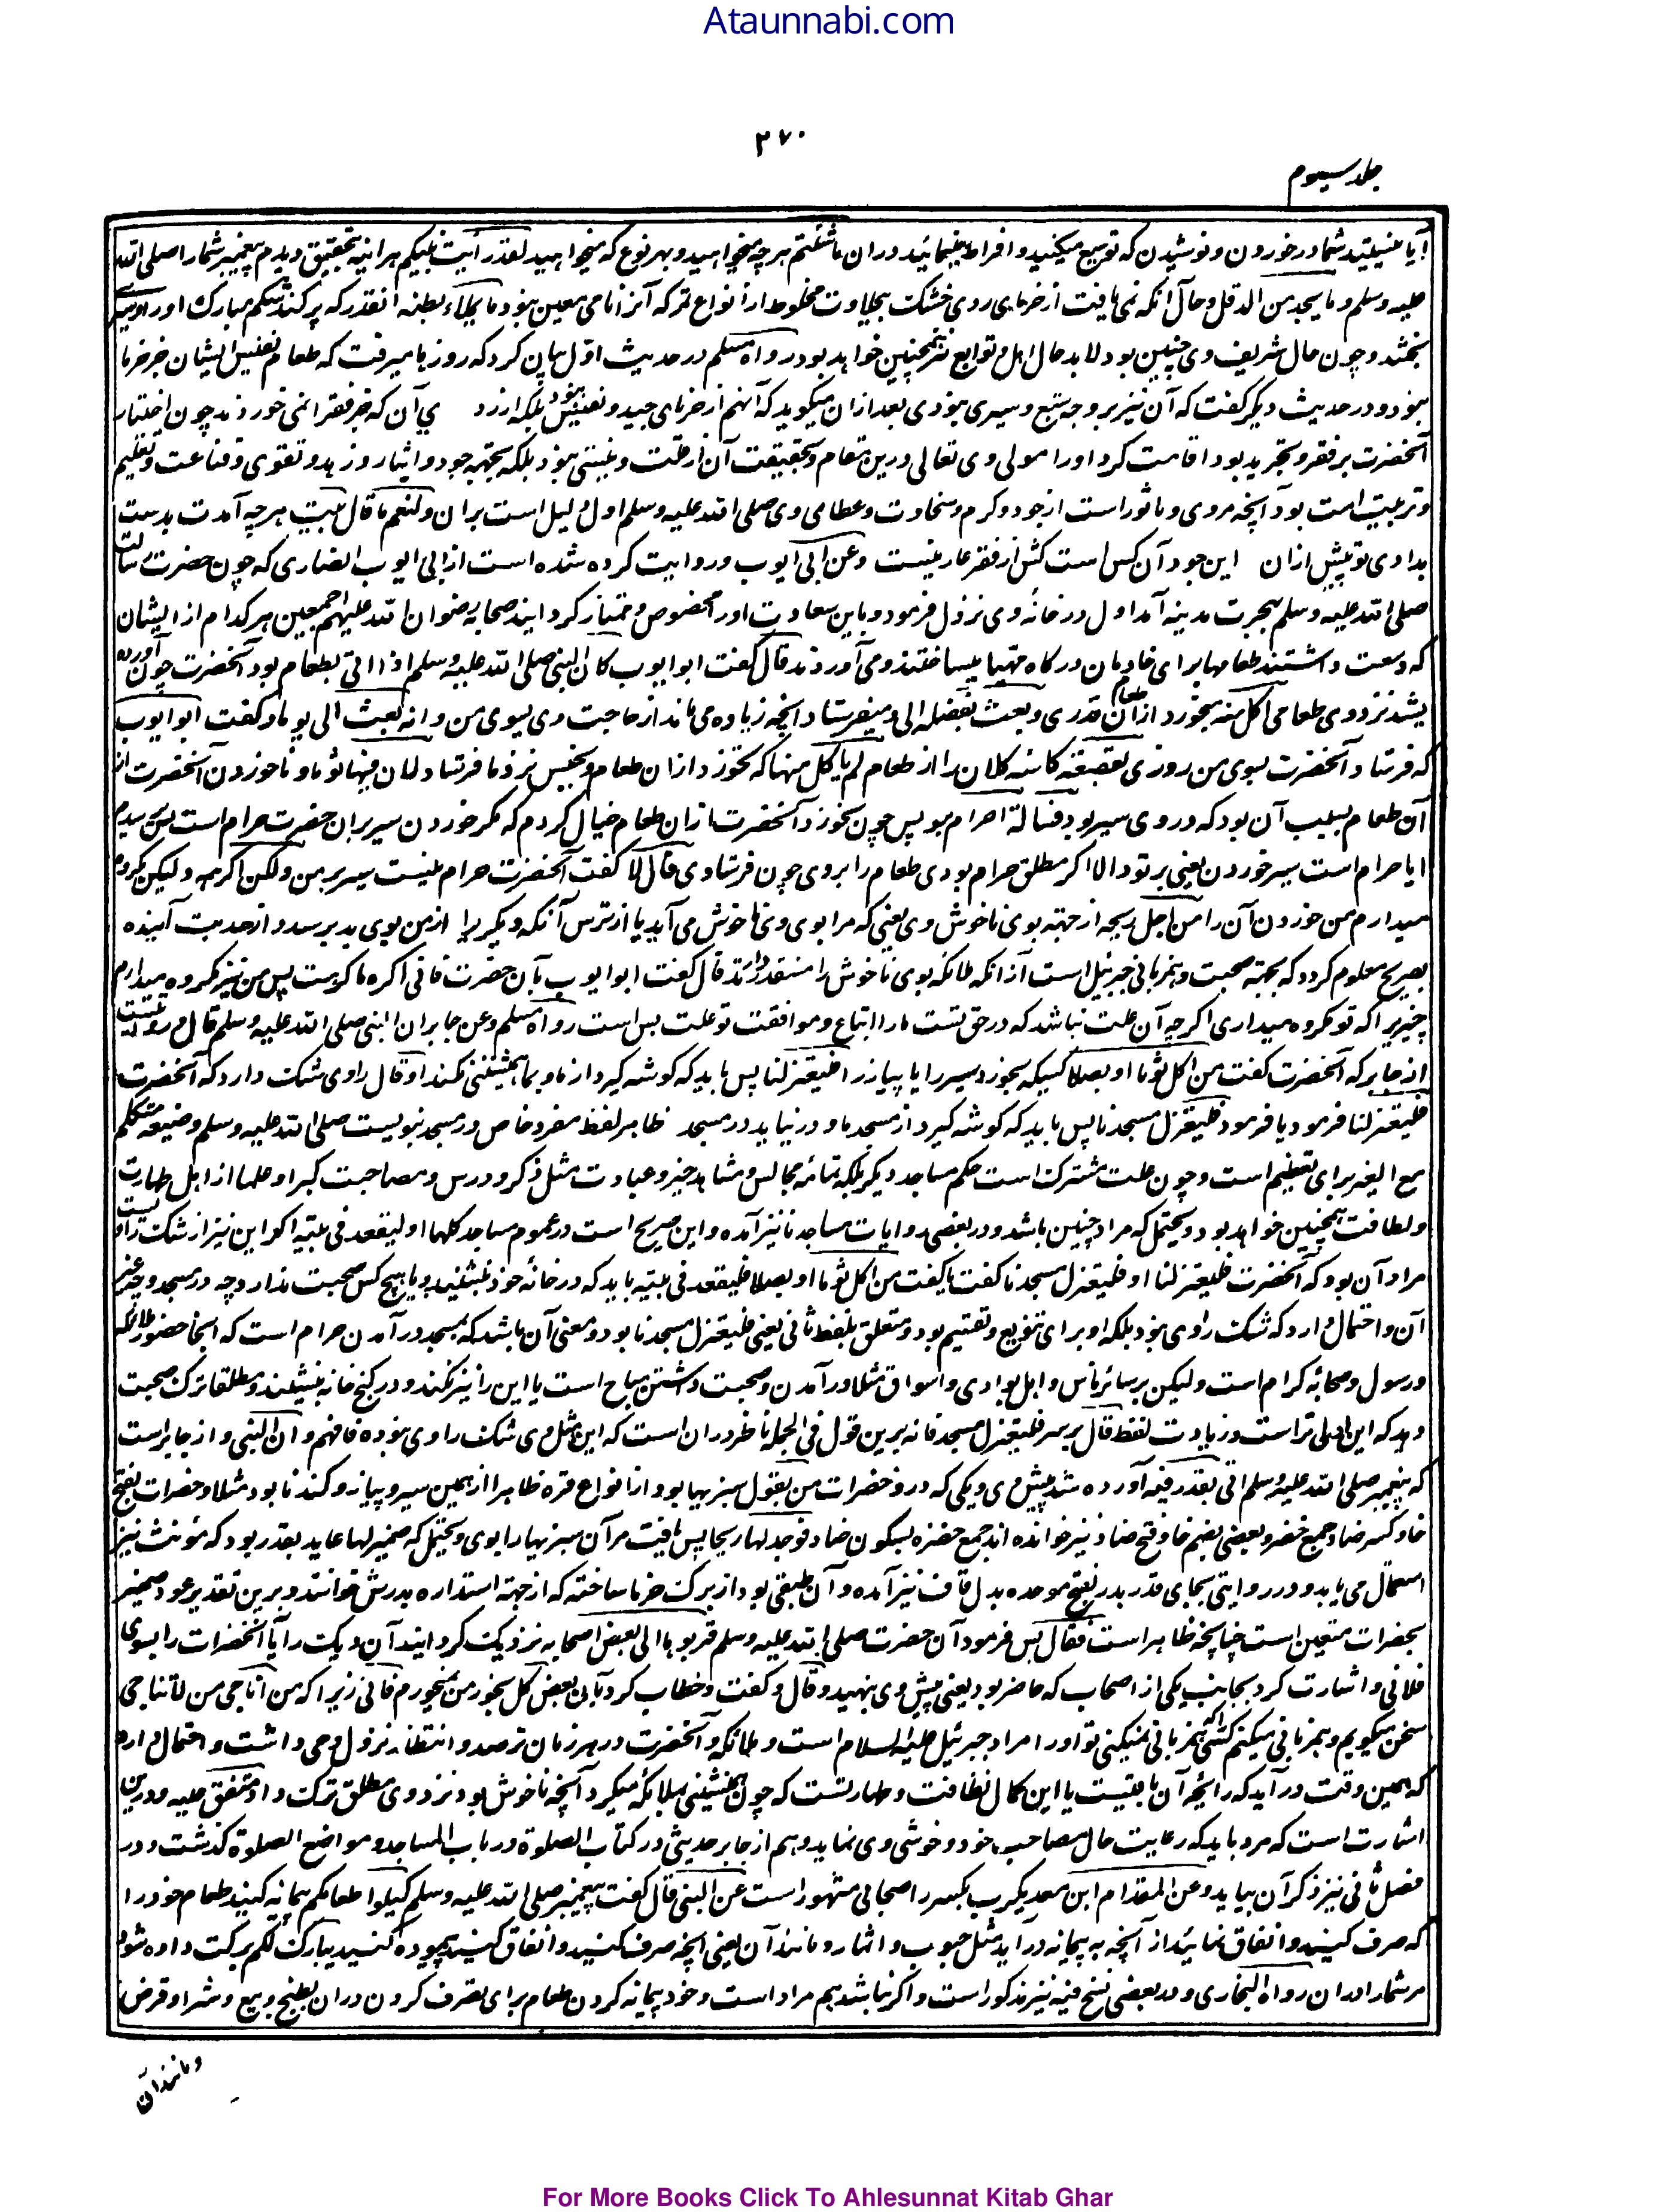 Ataunnabi.com
۲۷۰
جلد سیوم
آیا نیستید شما در خوردن و نوشیدن که توسیع میکنید و افراط مینمائید در ان ما شئتم هر چه میخواهید و بهر نوع که میخواهید لقد رأیت نبیکم هر اینه بتحقیق دیدم پیغمبر شما را صلی الله
علیه وسلم و ما یجد من الدقل و حال آنکه نمی یافت از خرمای ردی خشک مخلوط از انواع تمر که آنرا نامی معین نبود ما یملاء بطنه انقدر که پر کند شکم مبارک او را و سیری
بخشد و چون حال شریف وی چنین بود لابد حال اهل و توابع نیز همچنین خواهد بود رواه مسلم در حدیث اول بیان کرد که روزها میرفت که طعام نفیس ایشان جز خرما
نبود و در حدیث دیگر گفت که آن نیز بر وجه شبع و سیری نبودی بعد ازان میگوید که آنهم از خرمای جید و نفیس نبود بلکه از رد ی آن که جز فقرا نمی خورند چون اختیار
آنحضرت بر فقر و تجرید بود اقامت کرد او را مولی وی تعالی درین مقام و بحقیقت آن از قلت و نیستی نبود بلکه بجهة جود و ایثار و زهد و تقوی و قناعت و تعلیم
و تربیت امت بود آنچه مروی و ماثور است از جود و کرم و سخاوت و عطای وی صلی الله علیه وسلم اول دلیل است بران و لنعم ما قال بیت هر چه آمدت بدست
بدادی تو پیش ازان این جود آن کس است کش از فقر عار نیست وعن ابی ایوب و روایت کرده شده است از ابی ایوب انصاری که چون حضرت رسالت
صلی الله علیه وسلم بهجرت مدینه آمد اول در خانه وی نزول فرمود و باین سعادت او را مخصوص و ممتاز گردانید صحابه رضوان الله علیهم اجمعین هر کدام از ایشان
که وسعت داشتند طعامها برای خادمان درگاه مهیا میساختند و می آوردند قال گفت ابو ایوب کان النبی صلی الله علیه وسلم اذا اتی بطعام بود آنحضرت چون آورده
میشد نزد وی طعامی اکل منه میخورد ازان طعام قدری و بعث بفضله الی و میفرستاد آنچه زیاده می ماند از حاجت وی بسوی من و انه بعث الی یوما و گفت ابو ایوب
که فرستاد آنحضرت بسوی من روزی بقصعة کاسه کلان را از طعام لم یاکل منها که نخورد ازان طعام و بجنس نزد ما فرستاد لان فیها ثوما و ناخوردن آنحضرت از
آن طعام بسبب آن بود که در وی سیر بود فسالته احرام هو پس چون نخورد آنحضرت ازان طعام خیال کردم که مگر خوردن سیر بران حضرت حرام است پس پرسیدم
ایا حرام است سیر خوردن یعنی بر تو و الا اگر مطلق حرام بودی طعام را بروی چون فرستادی قال لا گفت آنحضرت حرام نیست سیر بر من ولکن اکرهه و لیکن مکروه
میدارم من خوردن آن را من اجل ریحه از جهة بوی ناخوش وی یعنی که مرا بوی وی ناخوش می آید یا از ترس آنکه دیگریرا از من بوی بد برسد و از حدیث آینده
بصریح معلوم گردد که بجهة صحبت و همزبانی جبرئیل است از انکه ملائکه بوی ناخوش را مستقذر دارند قال گفت ابو ایوب بآن حضرت فانی اکره ما کرهت پس من نیز مکروه میدارم
چیزیرا که تو مکروه میداری اگر چه آن علت نباشد که در حق تست ما را اتباع و موافقت تو علت بس است رواه مسلم وعن جابر ان النبی صلی الله علیه وسلم قال و روایتست
از جابر که آنحضرت گفت من اکل ثوما او بصلا کسیکه بخورد سیر را یا پیاز را فلیعتزلنا پس باید که گوشه گیرد از ما و با ما همنشینی نکند او قال راوی شک دارد که آنحضرت
فلیعتزلنا فرمود یا فرمود فلیعتزل مسجدنا پس باید که گوشه گیرد از مسجد ما و در نیاید در مسجد ظاهر لفظ مفرد خاص در مسجد نبویست صلی الله علیه وسلم و ضیغه متکلم
مع الغیر برای تعظیم است و چون علت مشترک است حکم مساجد دیگر بلکه تمامه مجالس و مشاهد خیر و عبادت مثل ذکر و درس و مصاحبت کبرا و علما از اهل طهارت
و لطافت همچنین خواهد بود و یحتمل که مراد چنین باشد و در بعضی روایات مساجدنا نیز آمده و این صریح است در عموم مساجد کلها او لیقعد فی بیته اگر این نیز از شک راویست
مراد آن بود که آنحضرت فلیعتزلنا او فلیعتزل مسجدنا گفت یا گفت من اکل ثوما او بصلا فلیقعد فی بیته باید که در خانه خود بنشیند و با هیچ کس صحبت ندارد چه در مسجد و چه غیر
آن و احتمال دارد که شک راوی نبود بلکه او برای تنویع و تقسیم بود و متعلق بلفظ ثانی یعنی فلیعتزل مسجدنا بود و معنی آن باشد که بمسجد در آمدن حرام است که انجا حضور ملائکه
و رسول و صحابه کرام است و لیکن بر سائر ناس و اهل بوادی و اسواق مثلا در آمدن و صحبت داشتن مباح است یا این را نیز نکند و در کنج خانه بنشیند و مطلقا ترک صحبت
دهد که این اولی تر است و زیادت لفظ قال بر سر فلیعتزل مسجدنا نه برین قول فی الجمله ناظر دران است که این مثل وی شک راوی نبوده فافهم و ان النبی و از جابر است
که پیغمبر صلی الله علیه وسلم اتی بقدر فیه آورده شد پیش وی دیگی که در و خضرات من بقول سبزیها بود از انواع تره ظاهرا از همین سیر و پیاز و گندنا بود مثلا و خضرات بفتح
خا و کسر ضاد جمع خضر و بعضی بضم خا و فتح ضاد نیز خوانده اند جمع خضره بسکون ضاد فوجد لها ریحا پس یافت مر آن سبزیها را بوی و یحتمل که ضمیر لها عاید بقدر بود که مؤنث نیز
استعمال می یابد و در روایتی بجای قدر بدر بفتح موحده بدل قاف نیز آمده و آن طبقی بود از برگ خرما ساخته که از جهة استداره بدرش خوانند و برین تقدیر عود ضمیر
بخضرات متعین است چنانچه ظاهر است فقال پس فرمود آن حضرت صلی الله علیه وسلم قربوها الی بعض اصحابه نزدیک گردانید آن دیگ را یا آن خضرات را بسوی
فلانی و اشارت کرد بجانب یکی از اصحاب که حاضر بود یعنی پیش وی بنهید و قال و گفت و خطاب کرد بآن بعض کل بخور من نمیخورم فانی زیرا که من اناجی من لا تناجی
سخن میگویم و همزبانی میکنم کسی را که همزبانی نمیکنی تو او را مراد جبرئیل علیه السلام است و ملائکه و آنحضرت در هر زمان ترصد و انتظار نزول وحی داشت و احتمال دارد
که همین وقت در آید که رائحه آن باقیست یا این کمال نظافت و طهارتست که چون همنشینی ملائکه میکرد آنچه ناخوش بود نزد وی مطلق ترک داد متفق علیه و درین
اشارت است که مرد باید که رعایت حال مصاحب خود و خوشی وی نماید و هم از جابر حدیثی در کتاب الصلوة در باب المساجد و مواضع الصلوة گذشت و در
فصل ثانی نیز ذکر آن بیاید وعن المقدام ابن معدیکرب بکسر را صحابی مشهور است عن النبی قال گفت پیغمبر صلی الله علیه وسلم کیلوا طعامکم پیمانه کنید طعام خود را
که صرف کنید و انفاق نمائید از آنچه به پیمانه در آید مثل حبوب و اثمار و مانند آن یعنی آنچه صرف کنید و انفاق کنید پیموده کنید یبارک لکم برکت داده شود
مر شما را دران رواه البخاری و در بعضی نسخ فیه نیز مذکور است و اگر نباشد هم مراد است و خود پیمانه کردن طعام برای تصرف کردن دران بطبخ و بیع و شرا و قرض
و مانند آن
For More Books Click To Ahlesunnat Kitab Ghar